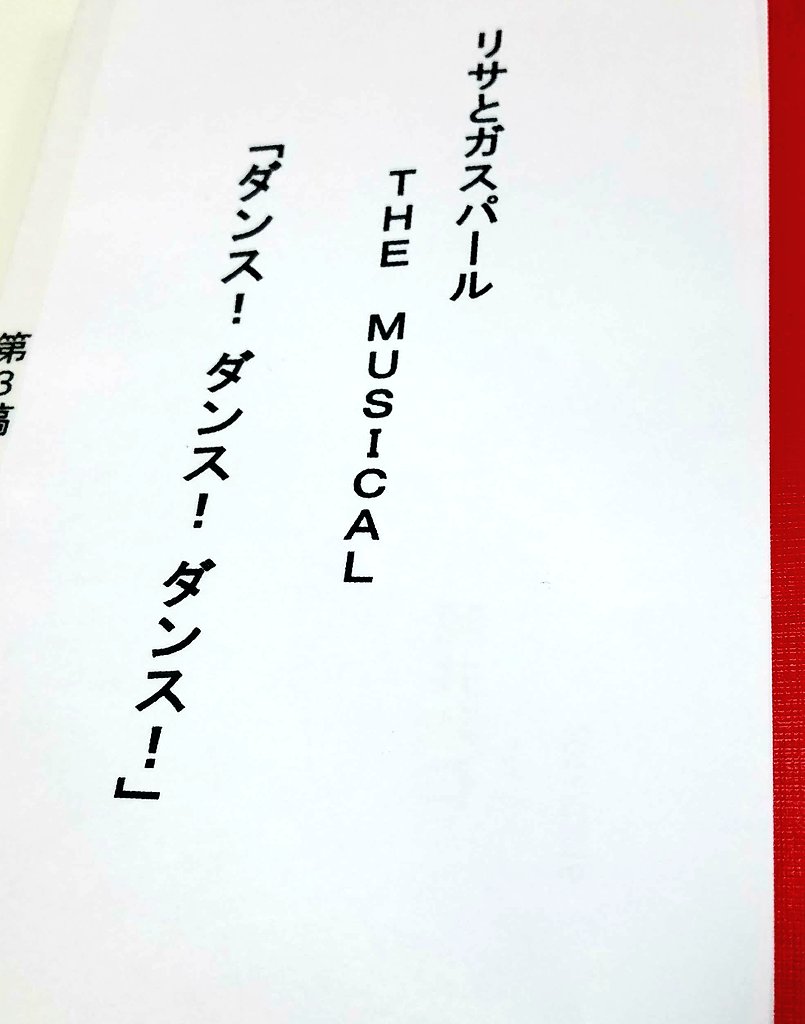 リサとガスパール
ＴＨＥ　ＭＵＳＩＣＡＬ
「ダンス！ダンス！ダンス！」
第３稿